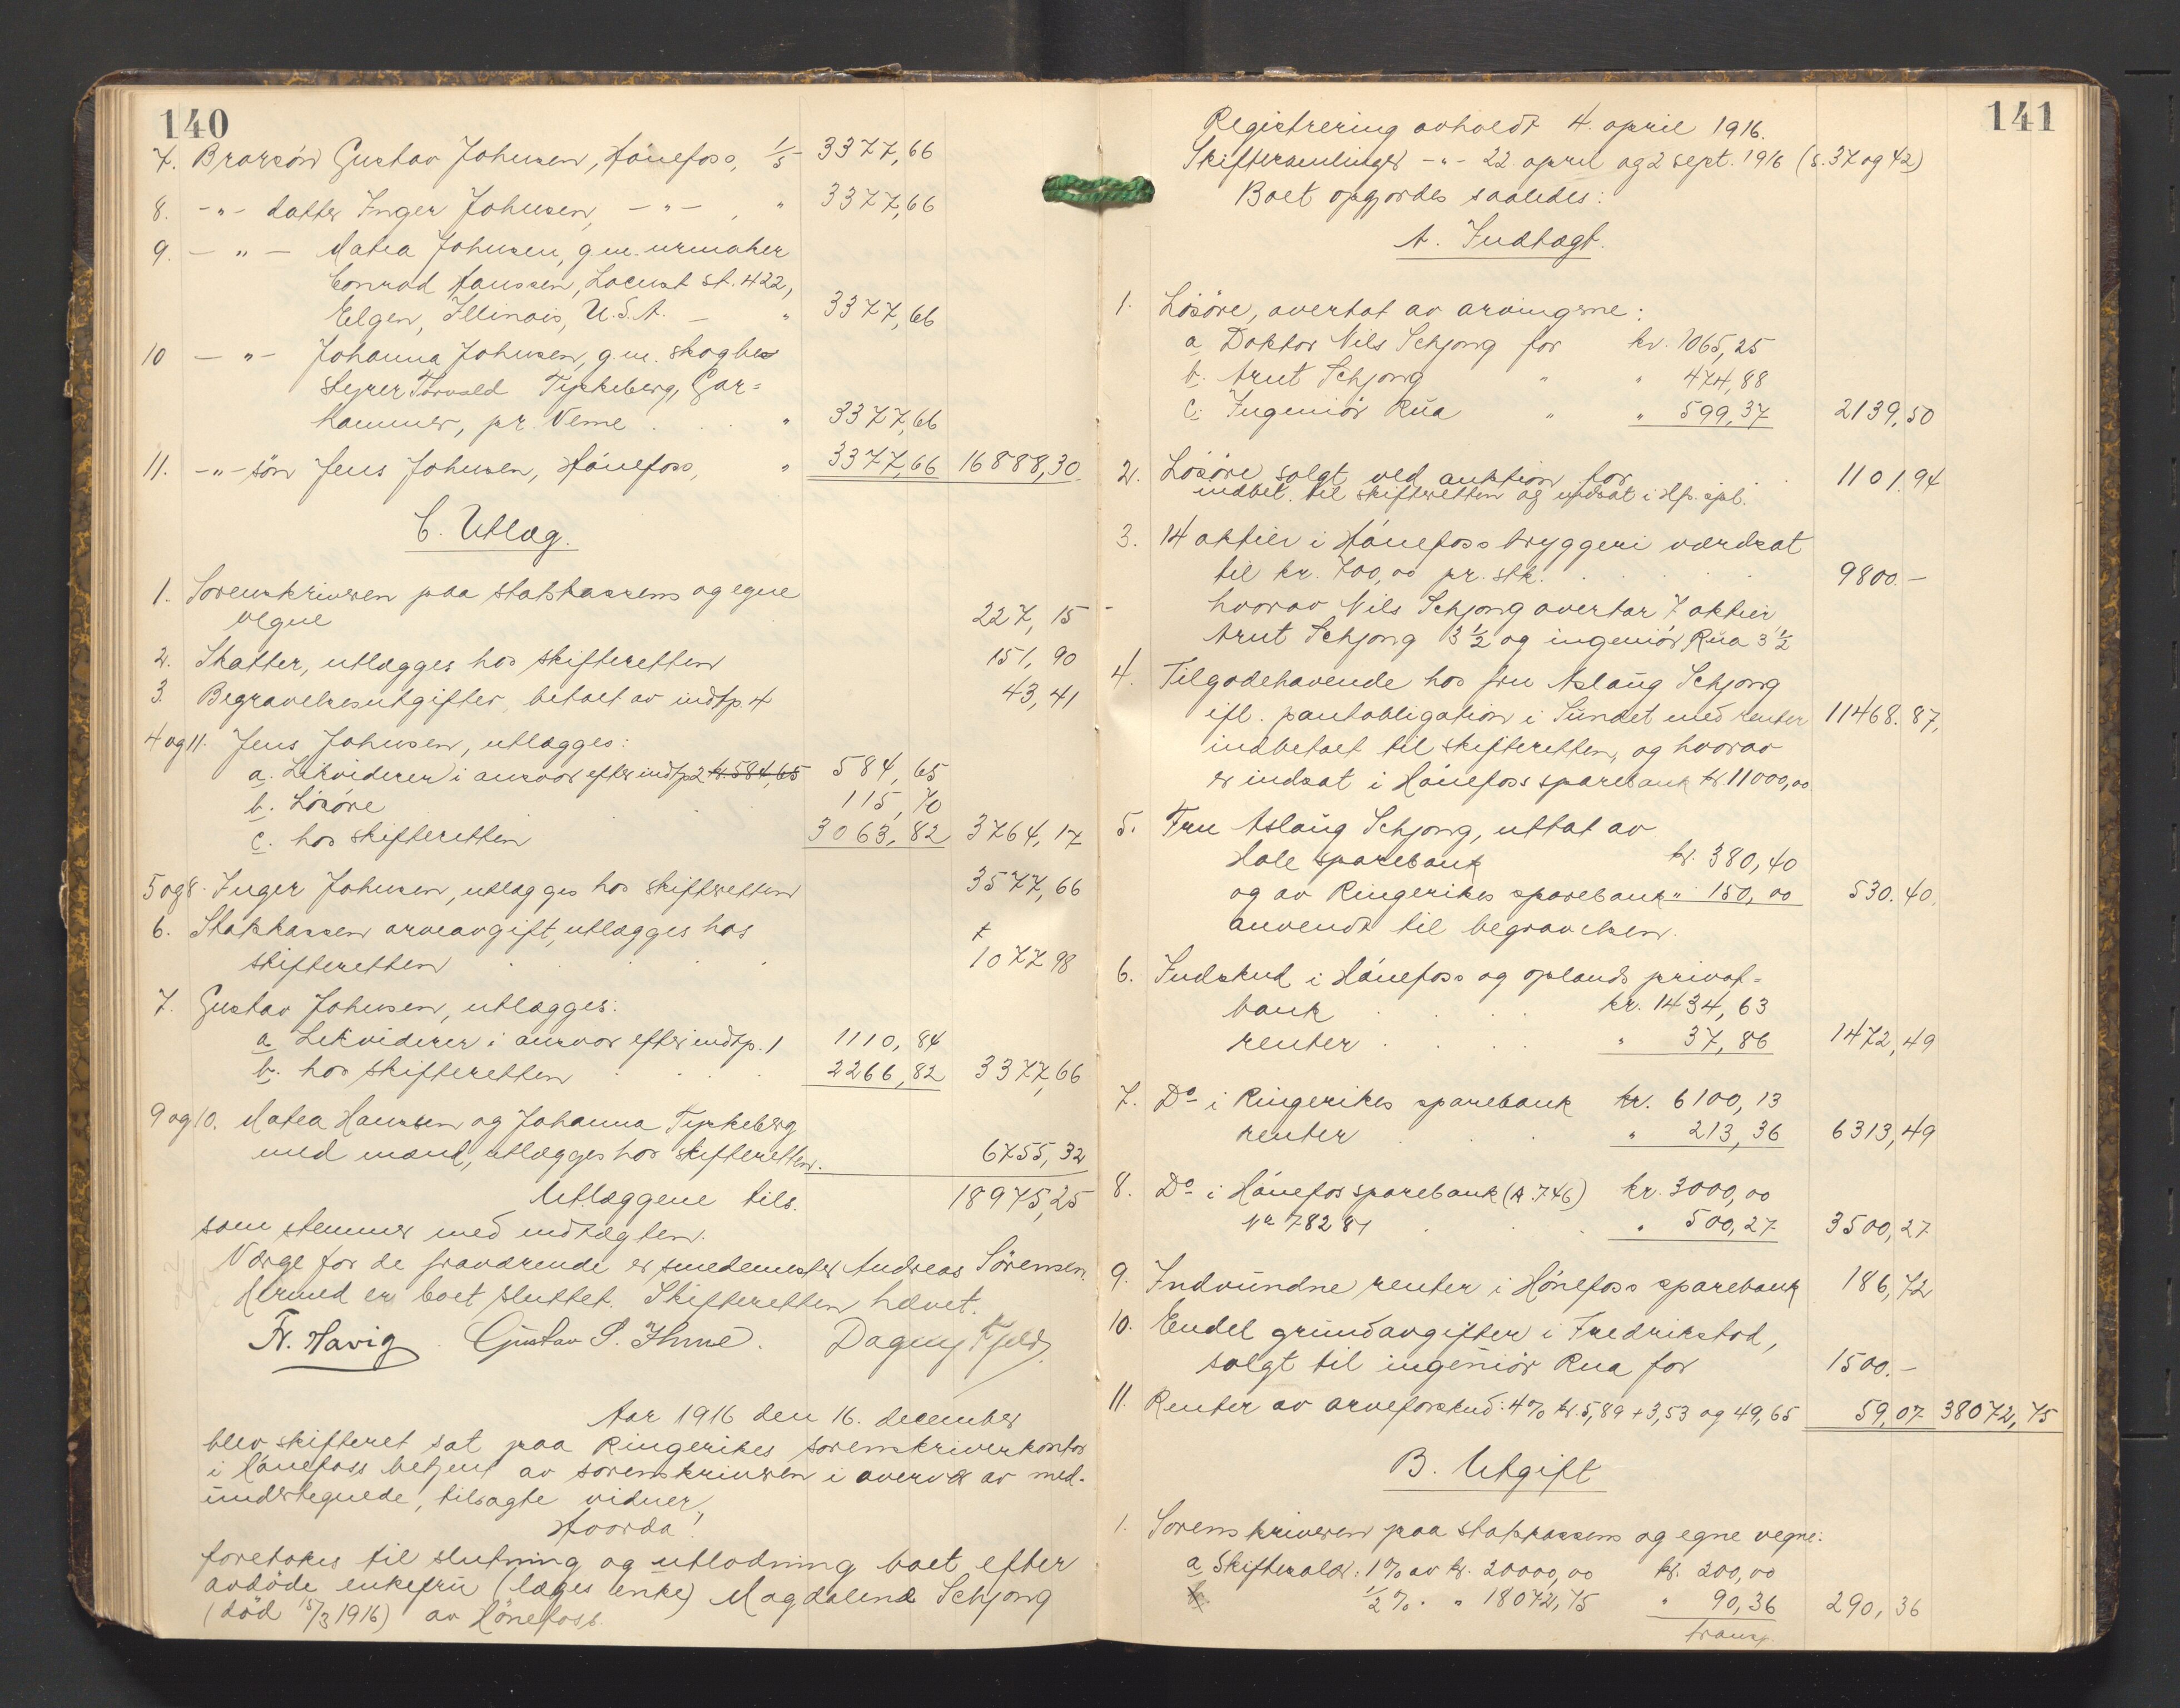 140
7. Brorsön Gustav Johnsen, Hönefoss, 1/5 - 3377,66
8. -"- datter Inger Johnsen, -"- , " 3377,66
9. -"- Matea Johnsen, g.m. urmaker
Conrad Hanssen, Locust St. 422,
Elgen, Illinois, U.S.A. - " 3377,66
10 -"- Johanna Johnsen, g.m. skogbe
styrer Torvald Tyskeberg, Gar=
hammer, pr. Veme . . . " 3377,66
11. -"- sön Jens Johnsen, Hönefoss, " 3377,66 16888,30
C. Utlæg.
1. Sorenskriveren paa statskassens og egne
vegne 227,15
2. Skatter, utlægges hos skifteretten 151,90
3. Begravelsesutgifter, betalt av indtp. 4 43,41
4 og 11. Jens Johnsen, utlægges:
a. Likviderer i ansvar efter indtp 2 kr. 584,65 584,65
b. Lösöre . . 115,70
c. hos skifteretten 3063,82 3764,17
5 og 8. Inger Johnsen, utlægges hos skifteretten 3577,66
6. Statskassen arveavgift, utlægges hos
skifteretten . . . 1077 98
7. Gustav Johnsen, utlægges:
a. Likviderer i ansvar efter indtp. 1 1110,84
b. hos skifteretten . . . 2266,82 3377,66
9 og 10. Matea Hanssen og Johanna Tyskeberg
med mænd, utlægges hos skifteretten. 6755,32
Utlæggene tils. 18975,25
som stemmer med indtægten.
Værge for de fraværende er smedemester Andreas Sörensen.
Hermed er boet sluttet. Skifteretten hævet.
Fr. Havig. Gustav S. Ihme. Dagny Fjeld
Aar 1916 den 16. december
blev skifteret sat paa Ringerikes sorenskriverkontor
i Hönefoss betjent av sorenskriveren i overvær av med-
undertegnede, tilsagte vidner!
Hvorda!
foretokes til slutning og utlodning boet efter
avdöde enkefru (læges enke) Magdalene Schjong
(död 15/3 1916) av Hönefoss.
141
Registrering avholdt 4. april 1916.
Skiftesamlinger -"- 22. april og 2 sept. 1916 (s. 37 og 42)
Boet opgjordes saaledes:
A. Indtægt.
1. Lösöre, overtat av arvingerne:
a Doktor Nils Schjong for kr. 1065,25
b. Arnt Schjong " " 474,88
c. Ingeniör Rua " " 599,37 2139,50
2. Lösöre solgt ved auktion for . 1101.94
indbet. til skifteretten og indsat i Hf. spb.
3. 14 aktier i Hönefoss bryggeri værdsat
til kr. 700,00 pr. stk. . . . 9800.-
hvorav Nils Schjong overtar 7 aktier
Arnt Schjong 3 1/2 og ingeniör Rua 3 1/2
4. Tilgodehavende hos fru Aslaug Schjong
ifl. pantobligation i Sundet med renter 11468.87,
indbetalt til skifteretten, og hvorav
er indsat i Hönefoss sparebank kr. 11000,00
5. Fru Aslaug Schjong, uttat av
Hole sparebank kr. 380,40
og av Ringerikes sparebank " 150,00 530.40.
anvendt til begravelsen.
6. Indskud i Hönefoss og oplands privat=
bank . . . . kr. 1434,63
renter . . . . " 37,86 1472,49
7. Do i Ringerikes sparebank kr. 6100,13
renter . . . " 213,36 6313,49
8. Do i Hönefos sparebank (A. 746) kr. 3000,00
No 78281 . . . " 500,27 3500,27
9. Indvundne renter i Hönefoss sparebank 186,72
10. Endel grundavgifter i Fredrikstad,
solgt til ingeniör Rua for 1500.-
11. Renter av arveforskud: 4% kr. 5,89 + 3,53 og 49,65 59,07 38072,75
B. Utgift
1. Sorenskriveren paa statskassens og egne vegne:
a Skiftesalær: 1% av kr. 20000,00 kr. 200,00
1/2 % " " 18072,75 " 90,36 290,36
transp.